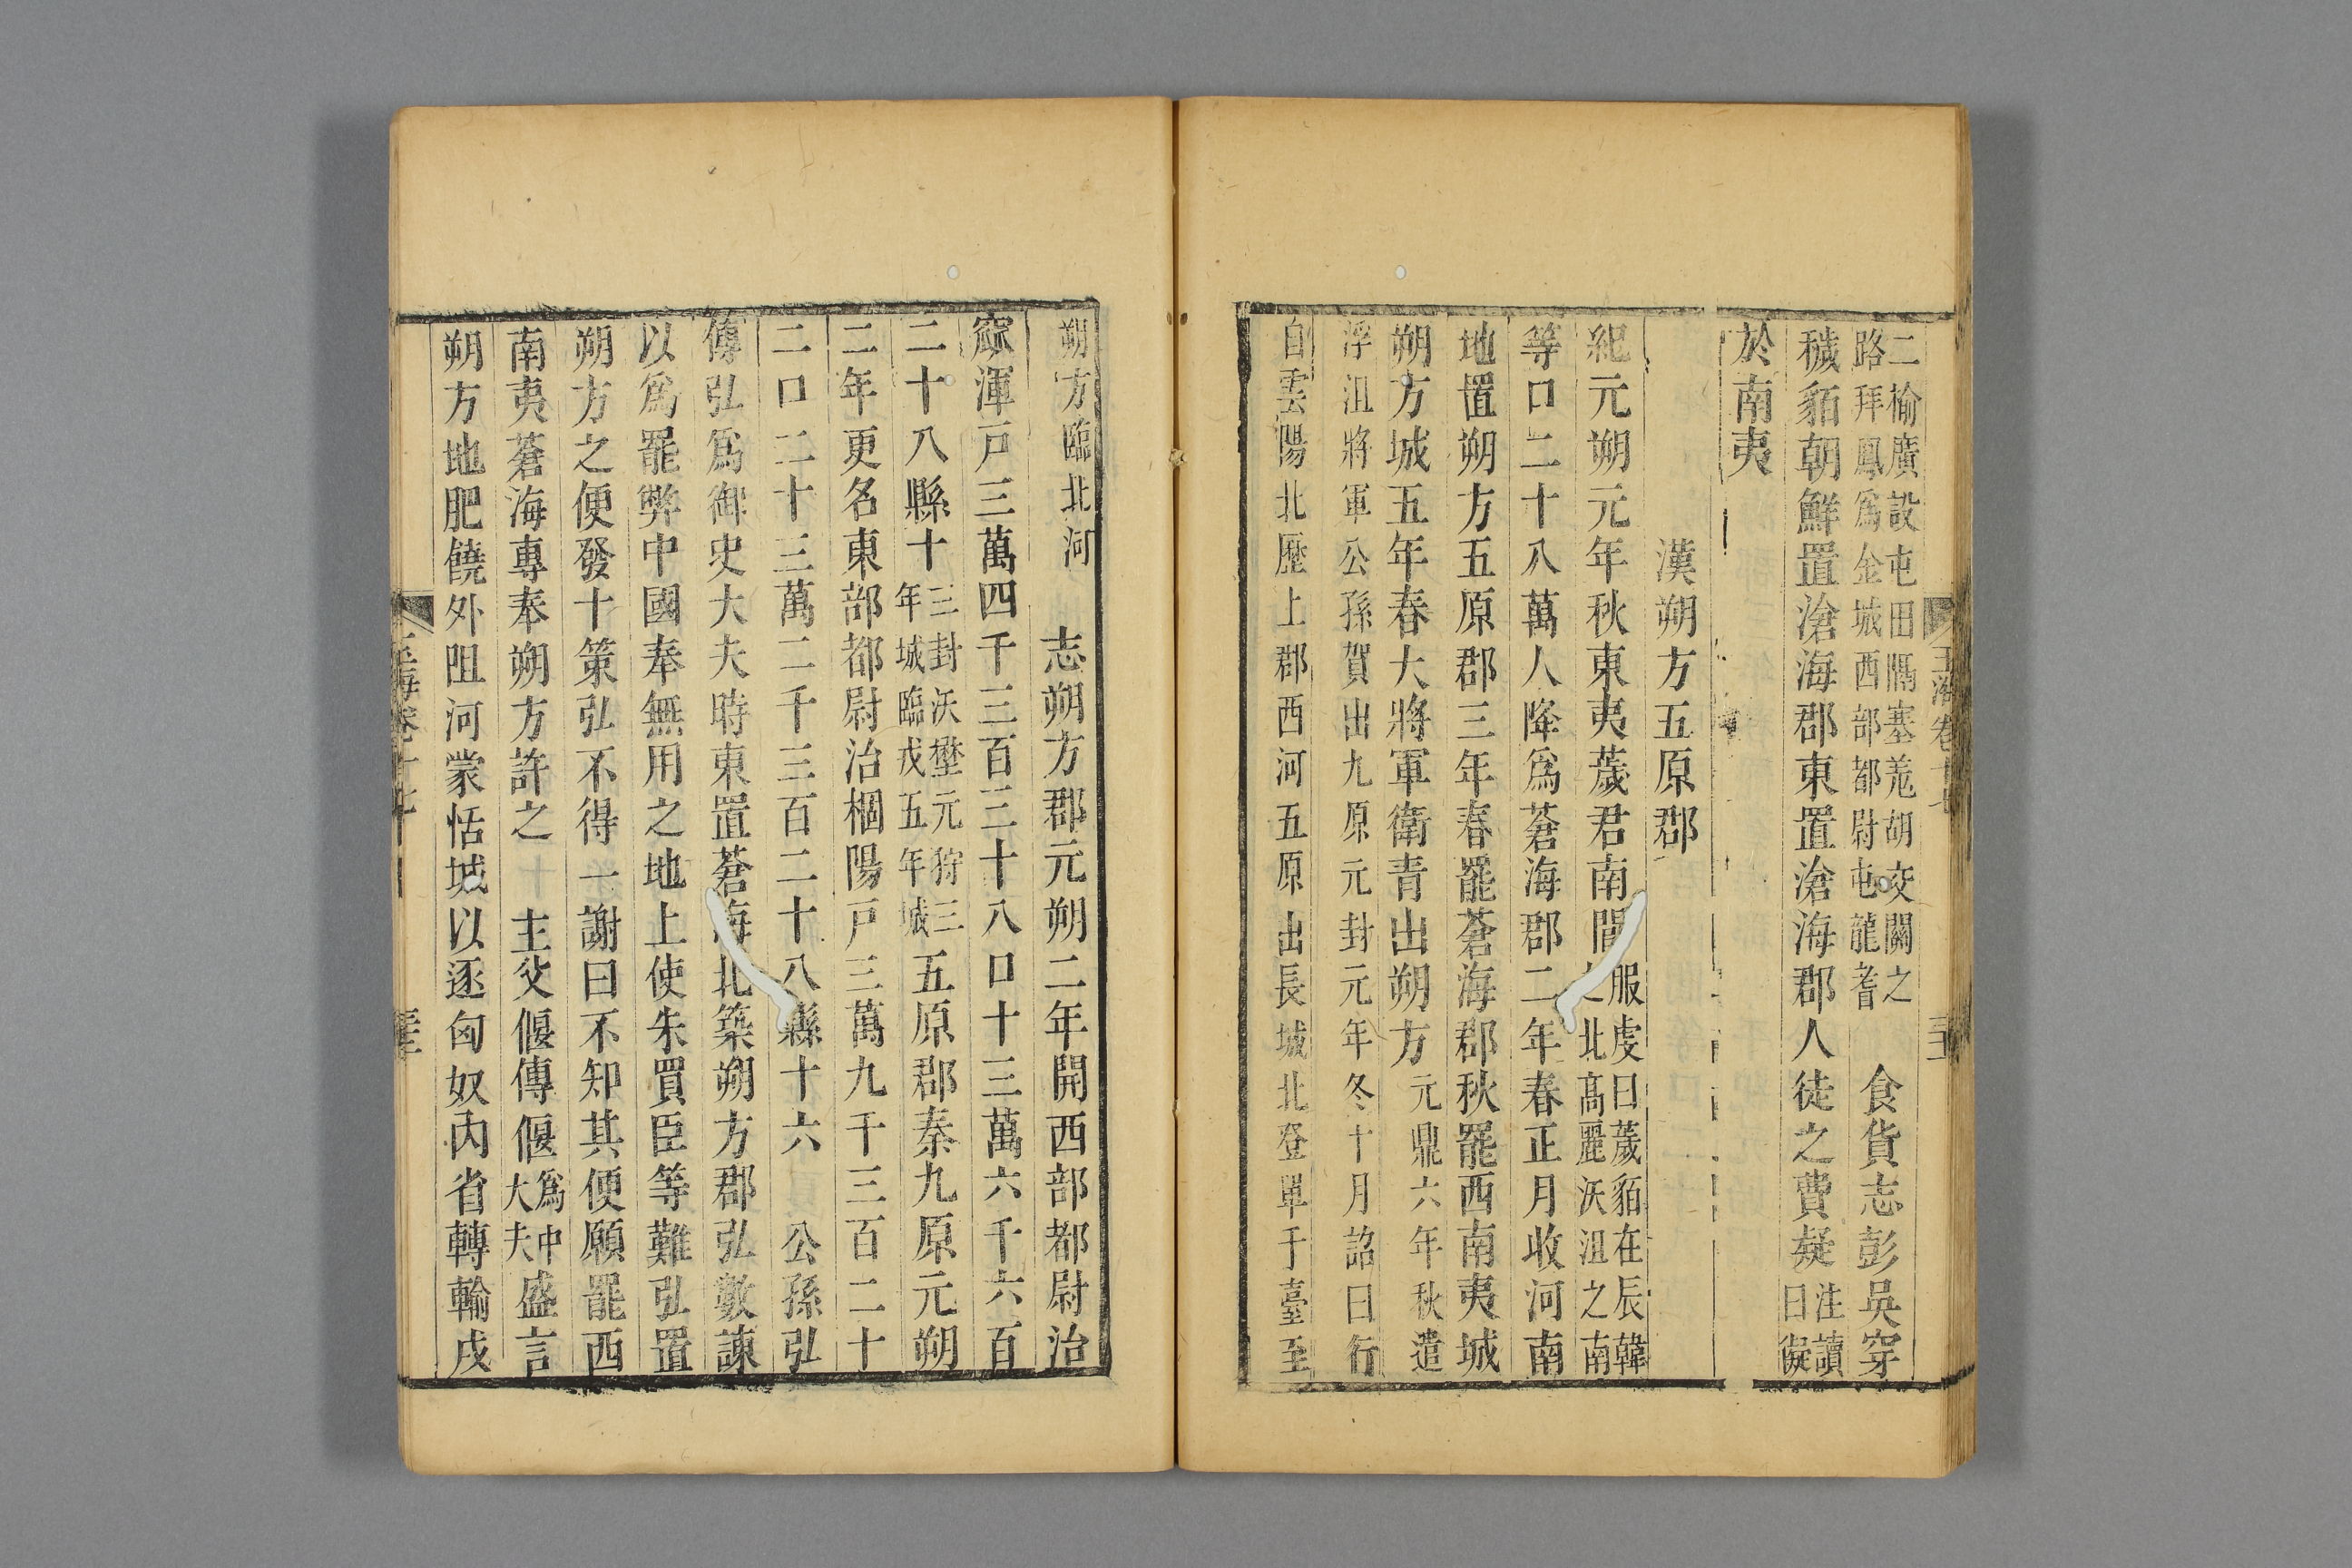 二榆廣設屯田隔塞羗胡交關之
路拜鳳爲金城西部都尉屯龍耆
食貨志彭吳穿
穢貊朝鮮置滄海郡東置滄海郡人徒之費疑
注讀
曰儗
於南夷
漢朔方五原郡
紀元朔元年秋東夷薉君南閭
服虔曰薉貊在辰韓
之北髙麗沃沮之南
等口二十八萬人降爲蒼海郡二年春正月收河南
地置朔方五原郡三年春罷蒼海郡秋罷西南夷城
朔方城五年春大將軍衛青出朔方
元鼎六年秋遣
浮沮將軍公孫賀出九原元封元年冬十月詔曰行
自雲陽北歷上郡西河五原出長城北登單于臺至
朔方臨北河
志朔方郡元朔二年開西部都尉治
窳渾戸三萬四千三百三十八口十三萬六千六百
二十八縣十
三封沃壄元狩三
年城臨戎五年城
五原郡秦九原元朔
二年更名東部都尉治稒陽戸三萬九千三百二十
二口二十三萬二千三百二十八縣十六
公孫弘
傳弘爲御史大夫時東置蒼海北築朔方郡弘數諫
以爲罷弊中國奉無用之地上使朱買臣等難弘置
朔方之便發十策弘不得一謝曰不知其便願罷西
南夷蒼海專奉朔方許之
主父偃傳偃
爲中
大夫
盛言
朔方地肥饒外阻河蒙恬城以逐匈奴内省轉輸戍